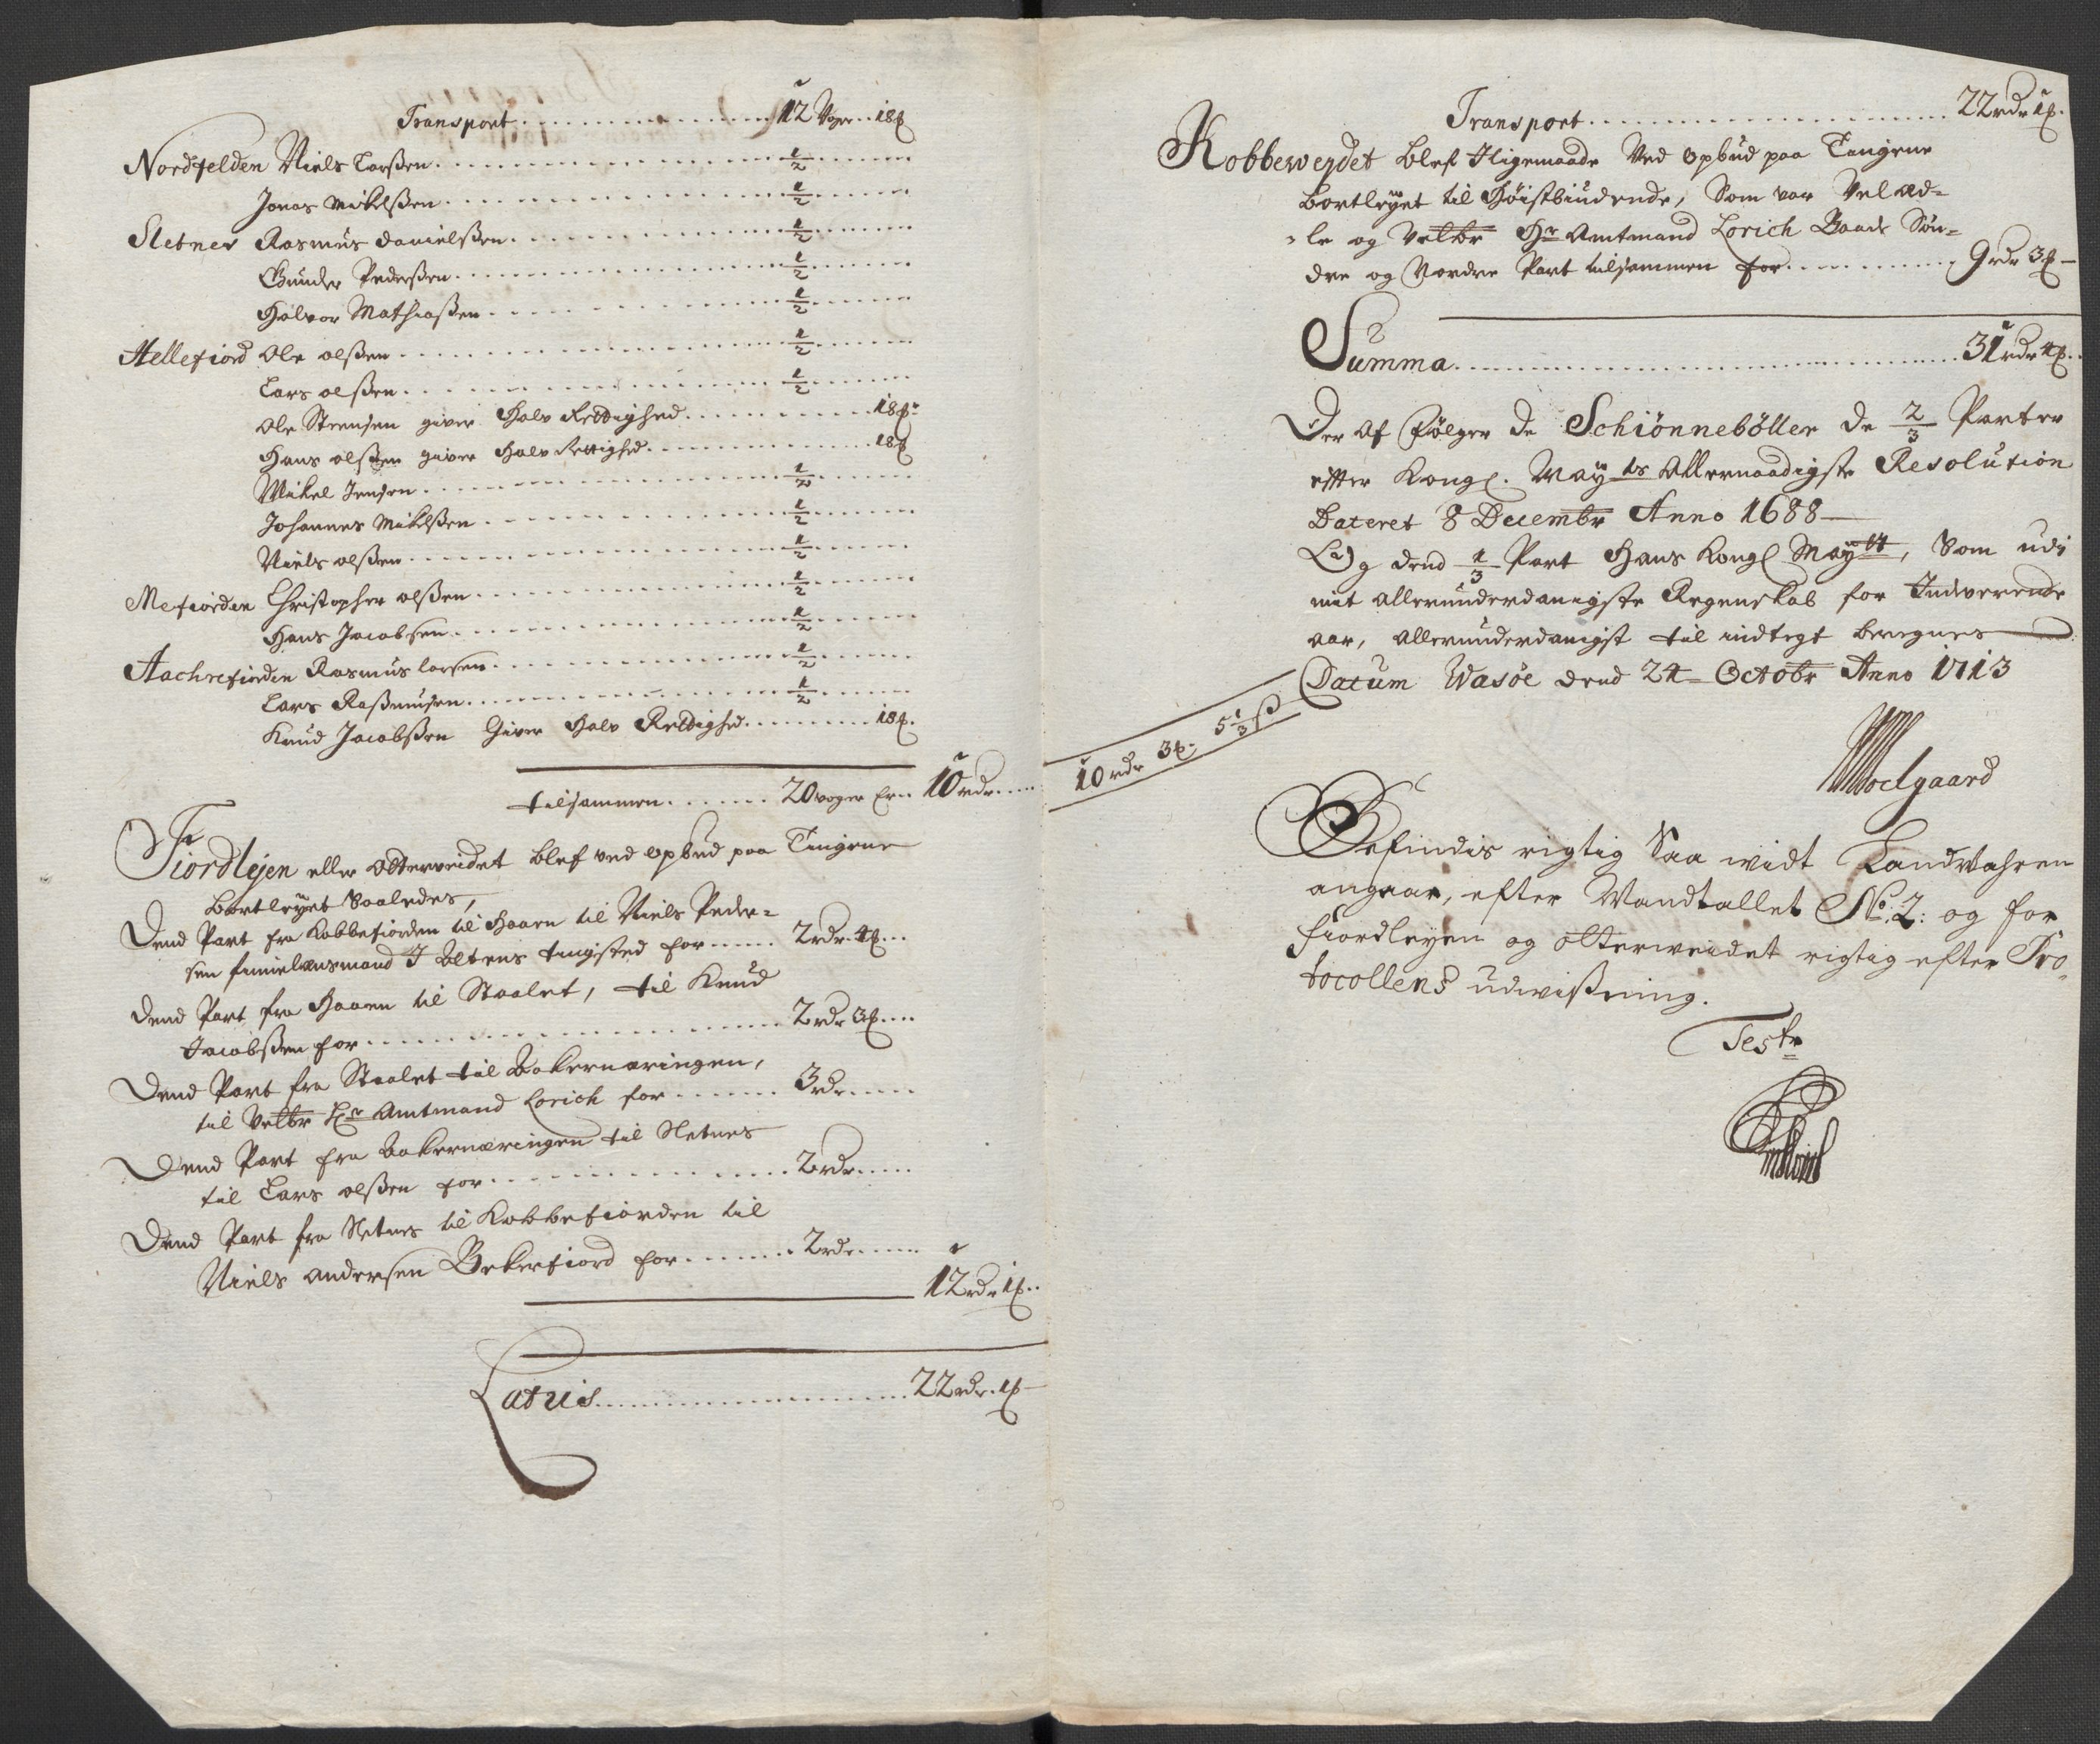 Transport . . . 12 Voger . . 18 ℔
Nordfelden Niels Larßen . . . 1/2
Jonas Mikelßen . . . 1/2
Sletnes Rasmus Danielßen . . . 1/2
Gunder Pederßen . . . 1/2
Halvor Mathiaßen . . . 1/2
Hellefiord Ole Olßen . . . 1/2
Lars Olßen . . . 1/2
Ole Steensen giver Halv Rettighed . . . 18 ℔
Hans Olßen giver Halv Rettighed . . . 18 ℔
Mikel Jensen . . . 1/2
Johannes Mikelßen . . . 1/2
Niels Olßen . . . 1/2
Mefiorden Christopher Olßen . . . 1/2
Hans Jacobsen . . . 1/2
Aachrefiorden Rasmus Larsen . . . 1/2
Lars Raßmusen . . . 1/2
Knud Jacobßen Giver Halv Rettighed . . . 18 ℔
tilsammen . . . 20 voger Er . . 10 rdr . . .
Fiordlejen eller Otterveidet blef ved opbud paa Tingene
bortleyet Saaledes,
Dend Part fra Kobbefiorden til Haaen til Niels Peder=
sen lensmand I Oltens tingsted for . . . 2 rdr 4 ß . . .
Dend Part fra Haaen til Staalet, til Knud
Jacobßen for . . . 2 rdr 3 ß . . .
Dend Part fra Staalet til Bakernæringen,
til Velbr Hr Amtmand Lorich for . . . 3 rdr . . .
Dend Part fra Bakernæringen til Sletnes
til Lars Olßen for . . . 2 rdr . . .
Dend Part fra Sletnes til Kobbefiorden til
Niels Andersen Bekerfiord for . . . 2 rdr . . .
12 rdr 1 ß . .
Latus . . . 22 rdr . 1 ß
Transport . . . 22 rdr 1 ß .
Kobbeveydet blef Iligemaade Ved opbud paa Tingene
bortleyet til Høistbiudende, Som var Velæd=
=le og Velbr Hr Amtmand Lorich Baade Søn=
dre og Nordre Part tilsammen for . . . 9 rdr 3 ß
Summa . . . 31 rdr 4 ß . .
Der Af Følger de Schiønnebøller de 2/3 Parter
efter Kongl. Mayts Allernaadigste Resolution
Dateret 8 Decembr Anno 1688
Og dend 1/3 Part Hans Kongl Maytt, Som udi
mit allerunderdanigste Regenskab for Indverende
aar, allerunderdanigst til indtegt beregnes
10 rdr 3 ß 5 1/3 ß
Datum Wasøe dend 24 Octobr Anno 1713
Moelgaard
Befindis rigtig Saa widt Landvahren
angaar, efter Mandtallet No. 2: og for
Fiordleyen og Otterweidet rigtig efter Pro=
tocollens udwißning.
Teste